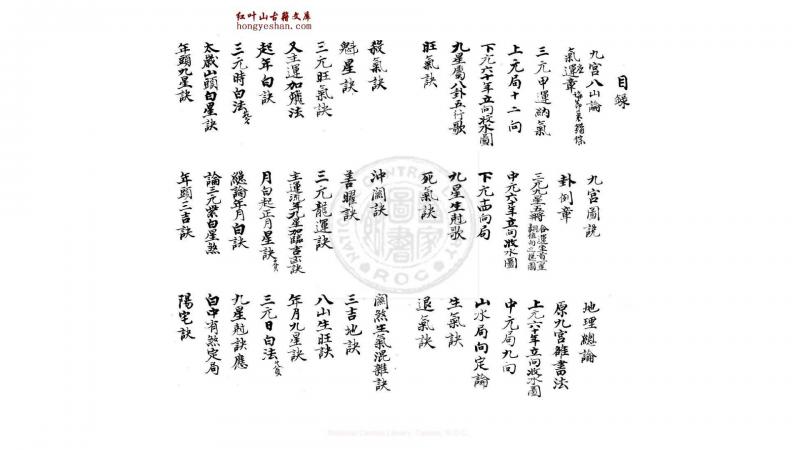 红叶山古籍文库
hongyeshan.com
目錄
九宮八山論
九宮圖說
地理總論
氣運章
卦例章
原九宮雒書法
三元甲運納氣
三元九星五將
上元六十年立向收水圖
上元局十二向
中元六十年立向收水圖
中元局九向
下元六十年立向收水圖
下元古向局
山水局向定論
九星屬八卦五行歌
九星生尅歌
生氣訣
旺氣訣
死氣訣
退氣訣
殺氣訣
沖關訣
關煞生氣混雜訣
魁星訣
善曜訣
三吉地訣
三元旺氣訣
三元龍運訣
八山生旺訣
又主運加飛法
主運流年九星加臨吉凶訣
年月九星訣
起年白訣
月白起正月星訣
三元日白法
三元時白法
總論年月白訣
九星尅訣應
太歲山頭白星訣
論三元紫白星煞
白中有煞定局
年頭九星訣
年頭三吉訣
陽宅訣
National Central Library, Taiwan, R.O.C.